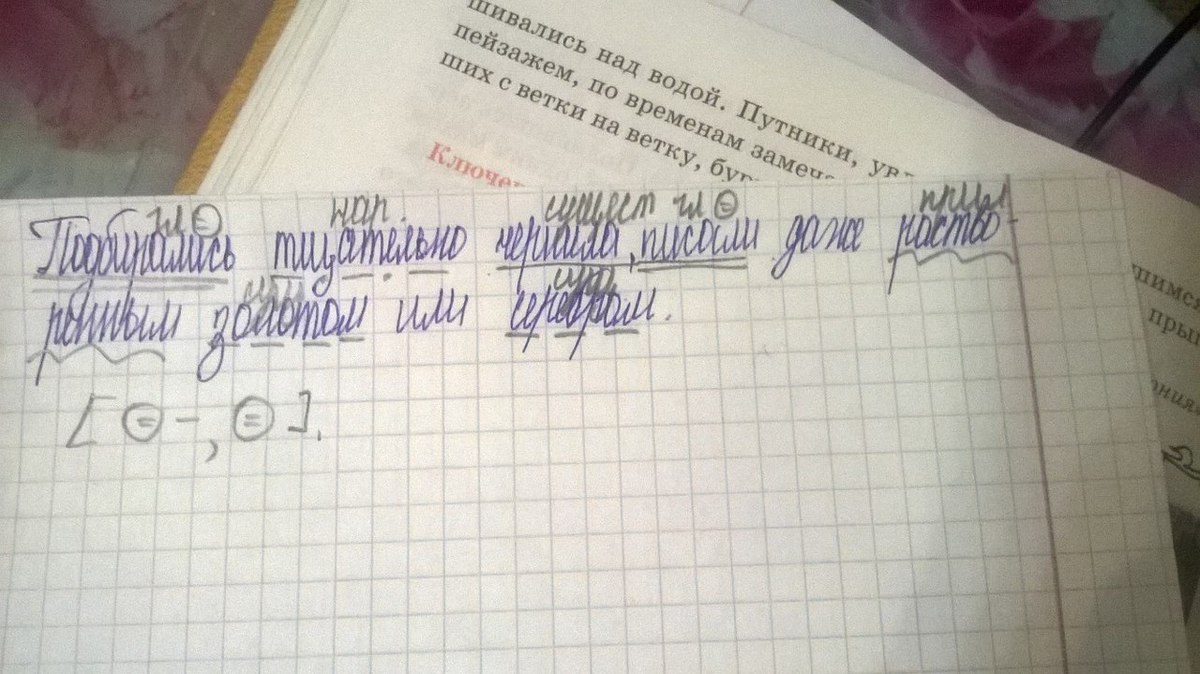 шивались над водой. Путники, ув
пейзажем, по временам замеча
ших с ветки на ветку, бур
Ключе
гл нар. сущест гл прил
Подбирались тщательно чернила, писали даже раство-
сущ сущ
ренным золотом или серебром.
[ –, ].
шимс
прып
ания.